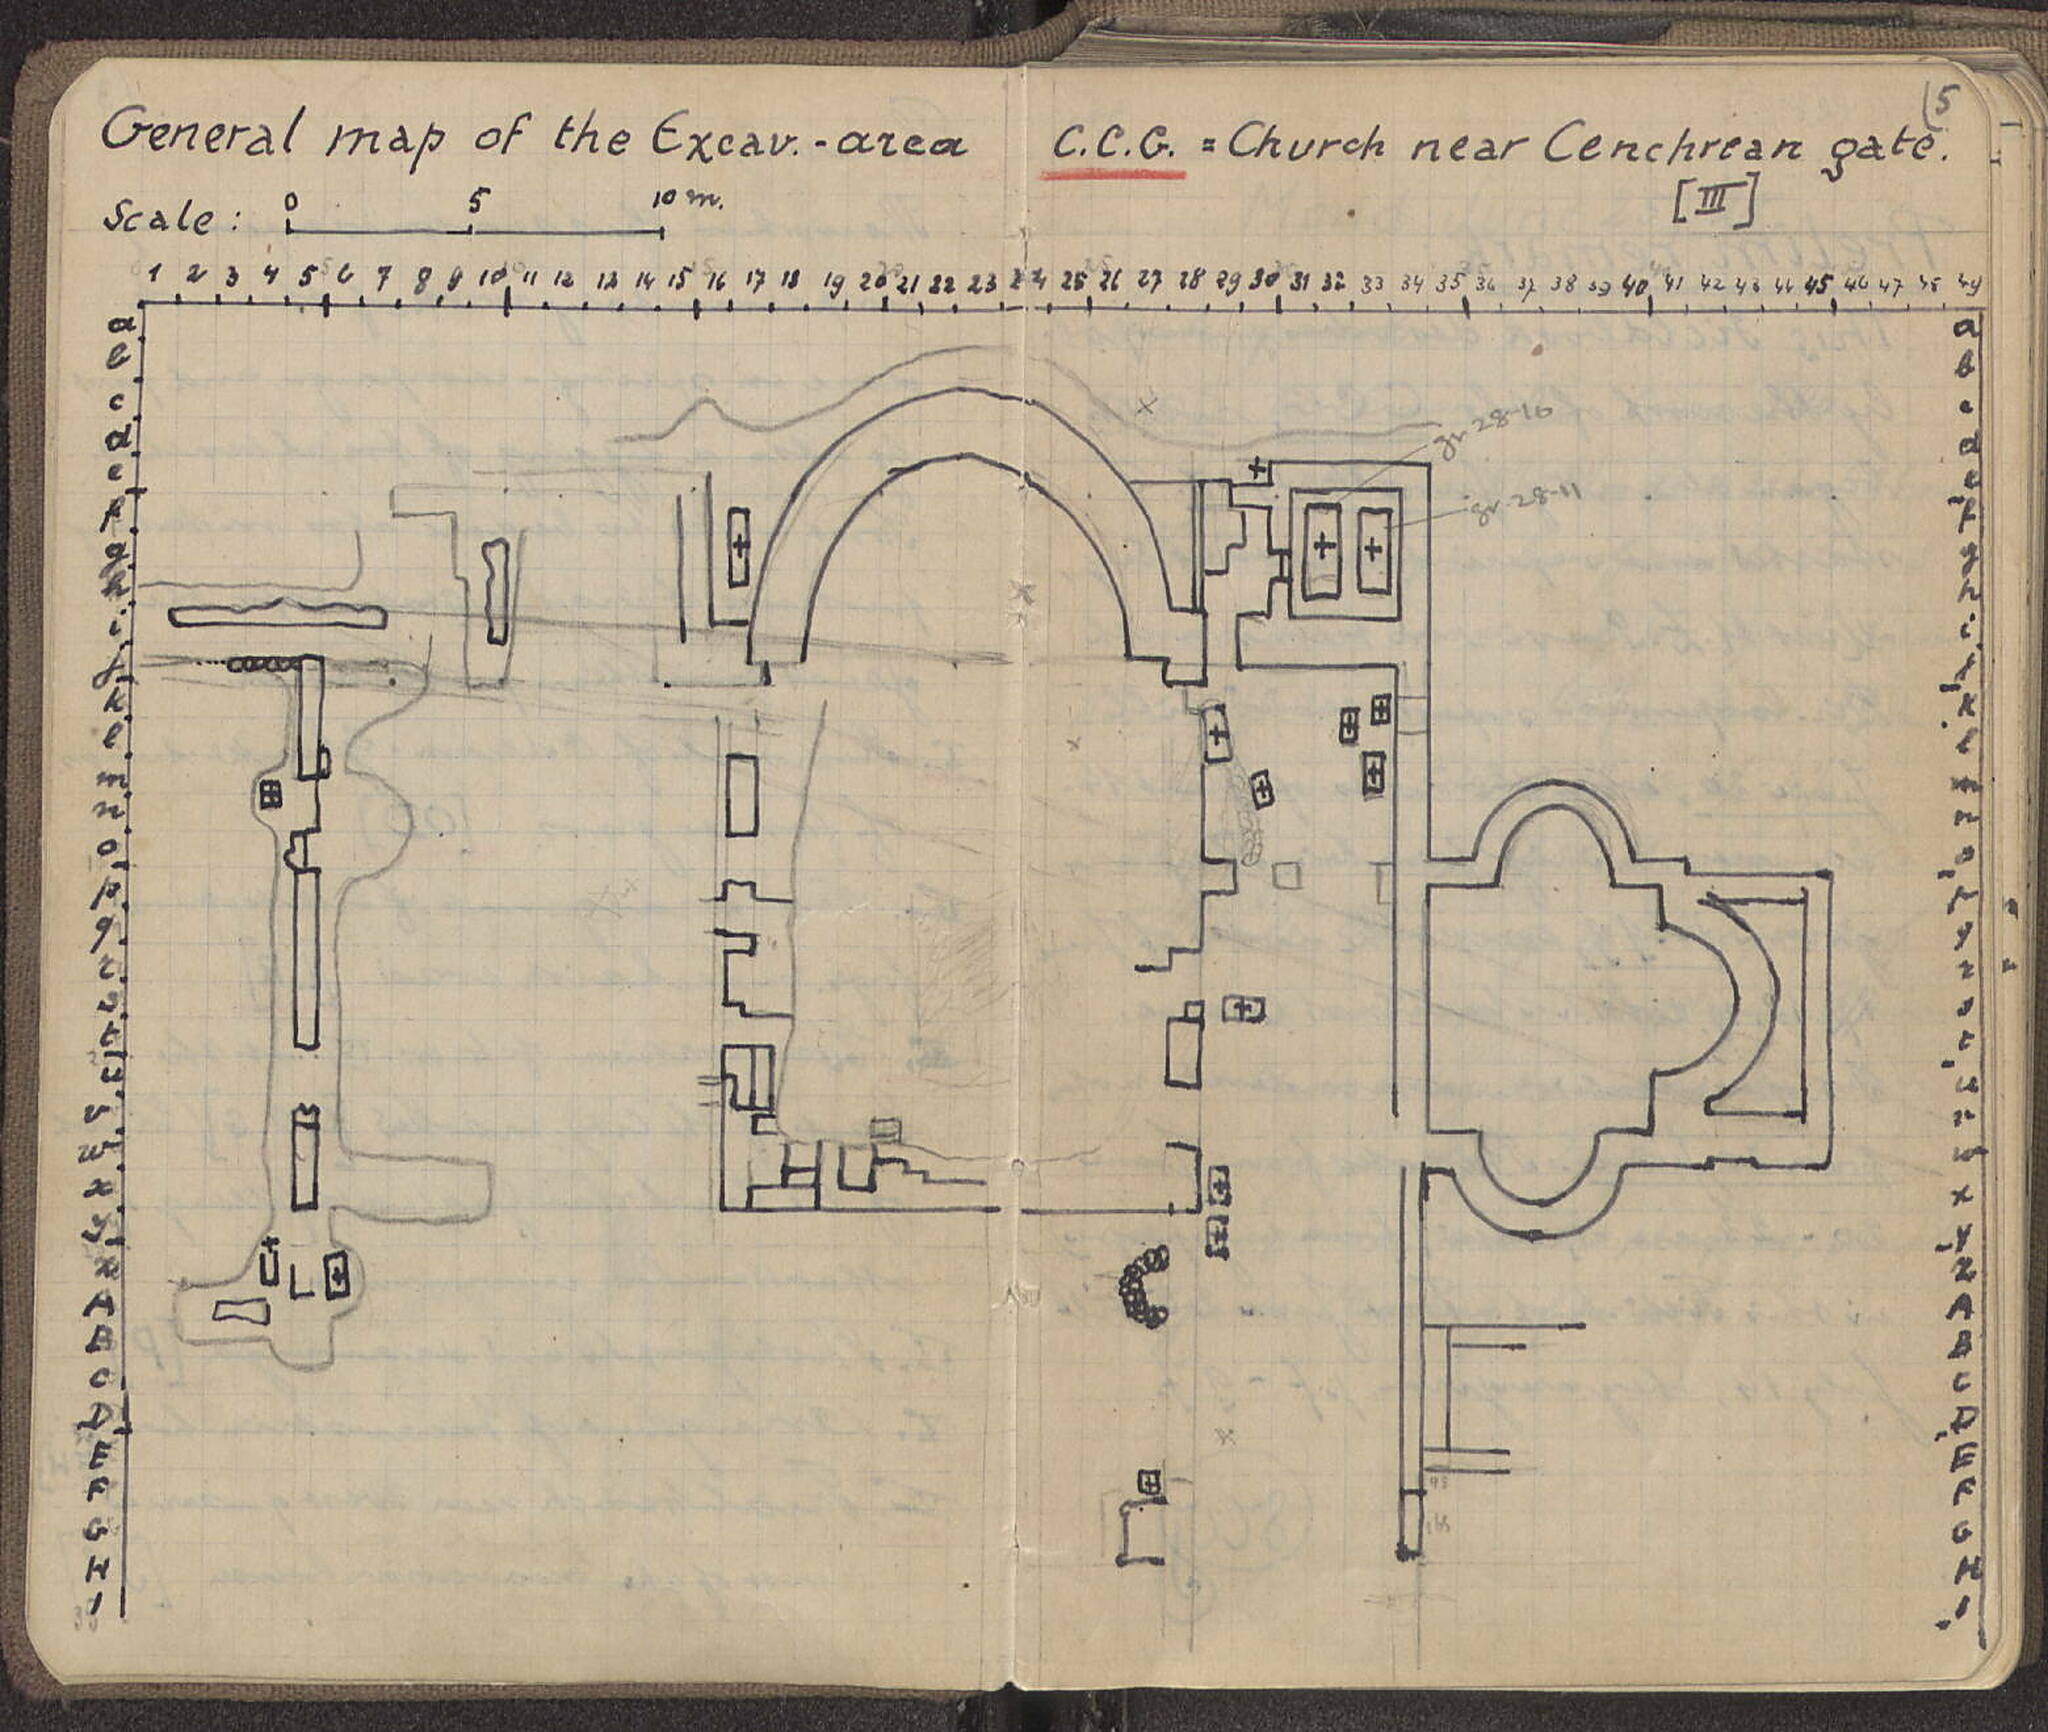 (5
General map of the Excav.-area C.C.G. = Church near Cenchrean gate.
[III]
Scale: 0 5 10 m.
1 2 3 4 5 6 7 8 9 10 11 12 13 14 15 16 17 18 19 20 21 22 23 24 25 26 27 28 29 30 31 32 33 34 35 36 37 38 39 40 41 42 43 44 45 46 47 48 49
a a
b b
c c
d d
e e
f f
g g
h h
i i
j j
k k
l l
m m
n n
o o
p p
q q
r r
s s
t t
u u
v v
w w
x x
y y
z z
A A
B B
C C
D D
E E
F F
G G
H H
I I
gr 28-10
gr. 28-11